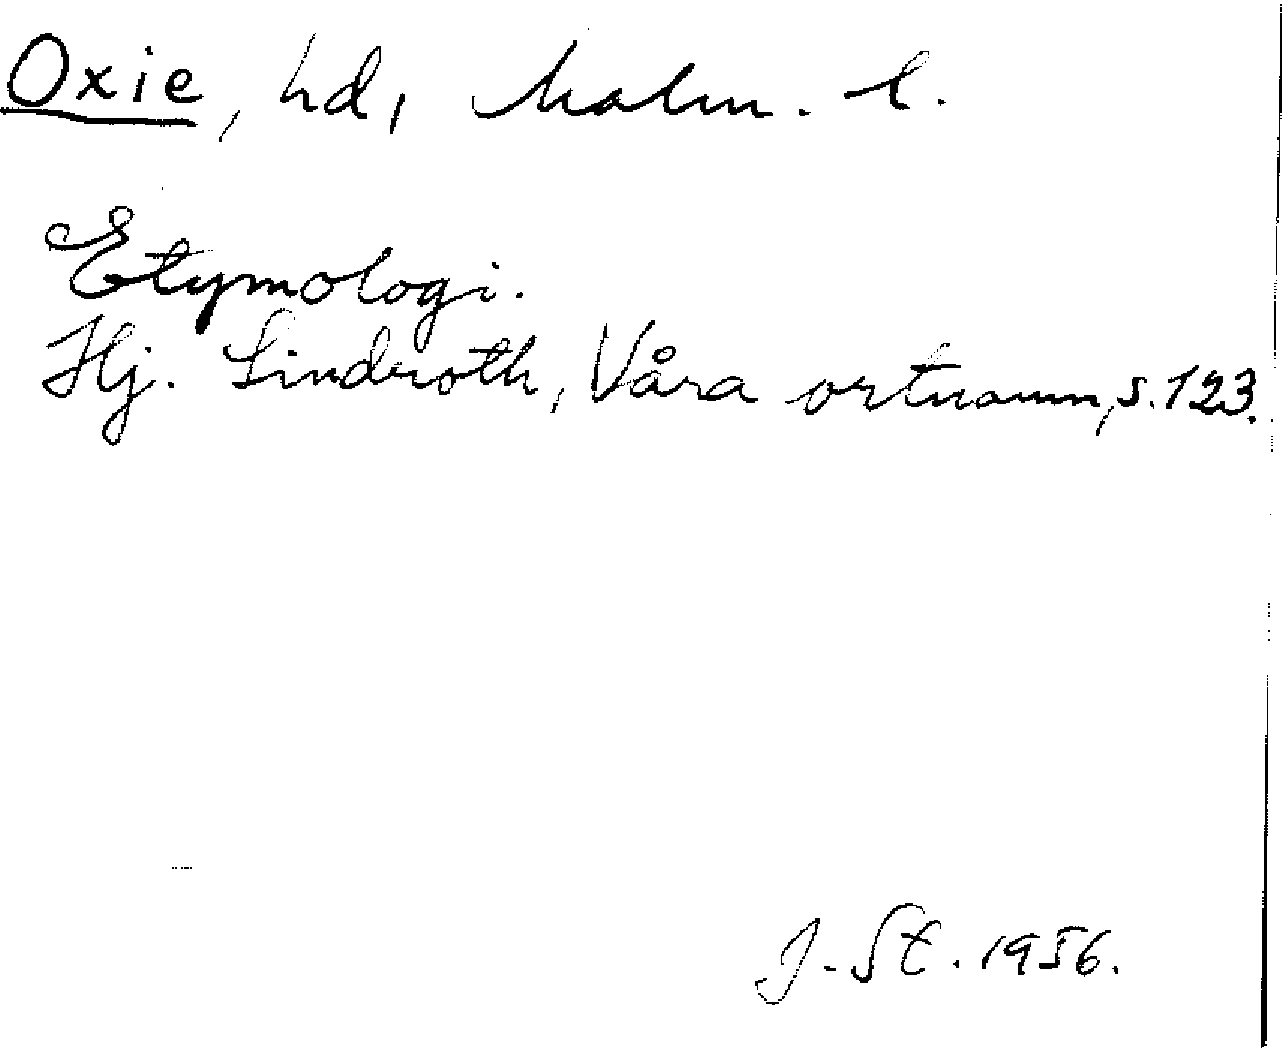 Oxie, hd, Malm. l.
Etymologi.
Hj. Lindroth, Våra ortnamn, s. 123.
J. St. 1956.